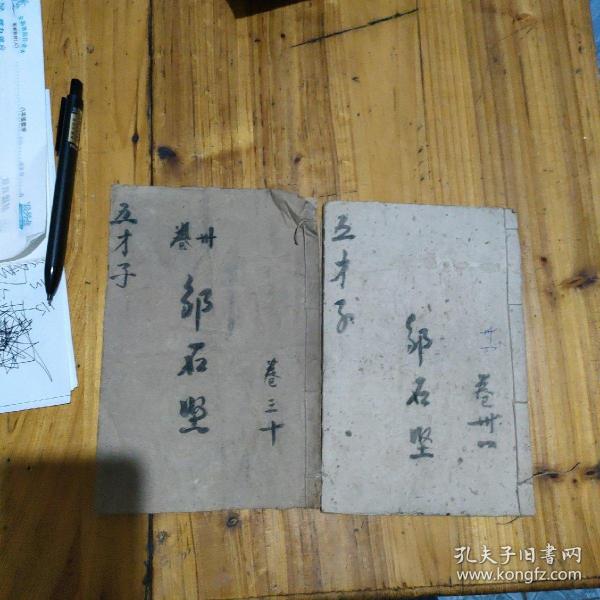 五才子
卷卅
邹石坚
卷三十
五才子
邹石坚
卷卅一
孔夫子旧书网
www.kongfz.com